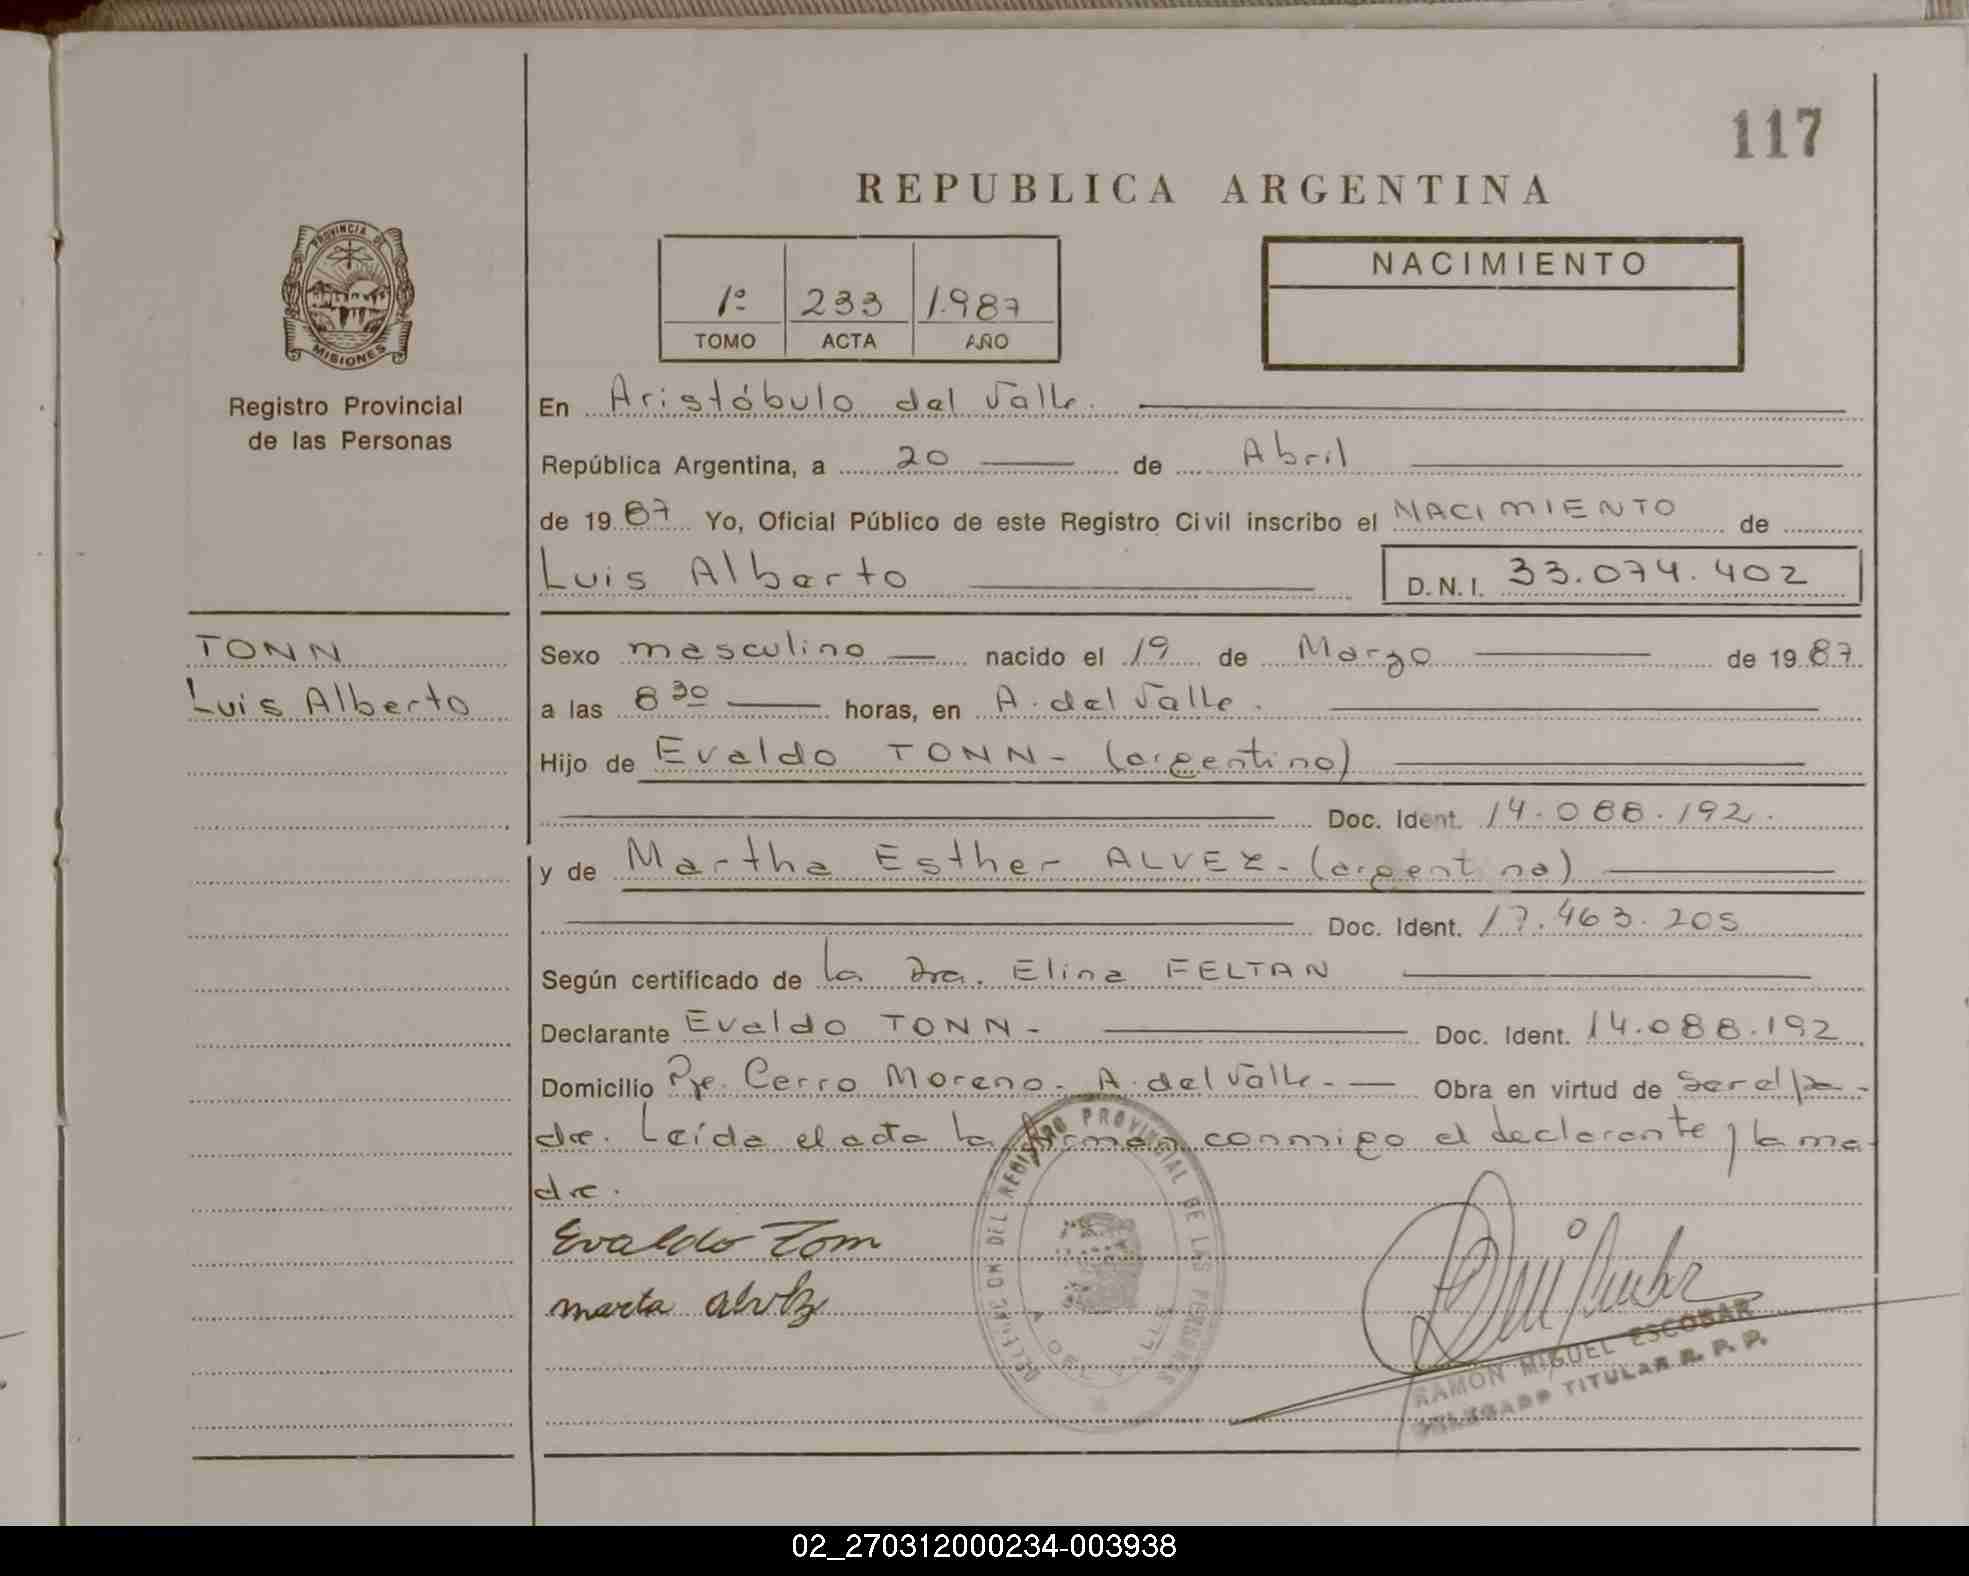 117
REPUBLICA ARGENTINA
PROVINCIA DE
MISIONES
Registro Provincial
de las Personas
1º 233 1.987
TOMO ACTA AÑO
NACIMIENTO
En Aristóbulo del Valle.
República Argentina, a 20 de Abril
de 1987 Yo, Oficial Público de este Registro Civil inscribo el NACIMIENTO de
Luis Alberto D.N.I. 33.074.402
TONN
Luis Alberto
Sexo masculino nacido el 19 de Marzo de 1987.
a las 8 30 horas, en A. del Valle.
Hijo de Evaldo TONN - (argentino)
Doc. Ident. 14.088.192.
y de Martha Esther ALVEZ - (argentina)
Doc. Ident. 17.463.205
Según certificado de la Dra. Elina FELTAN
Declarante Evaldo TONN - Doc. Ident. 14.088.192
Domicilio Pje. Cerro Moreno - A. del Valle - Obra en virtud de ser el pa-
dre. Leída el acta la firman conmigo el declarante y la ma-
dre.
Evaldo Tonn
marta alvez
DEL REGISTRO PROVINCIAL DE LAS PERSONAS
A. DEL VALLE
RAMON MIGUEL ESCOBAR
DELEGADO TITULAR R. P. P.
02_270312000234-003938